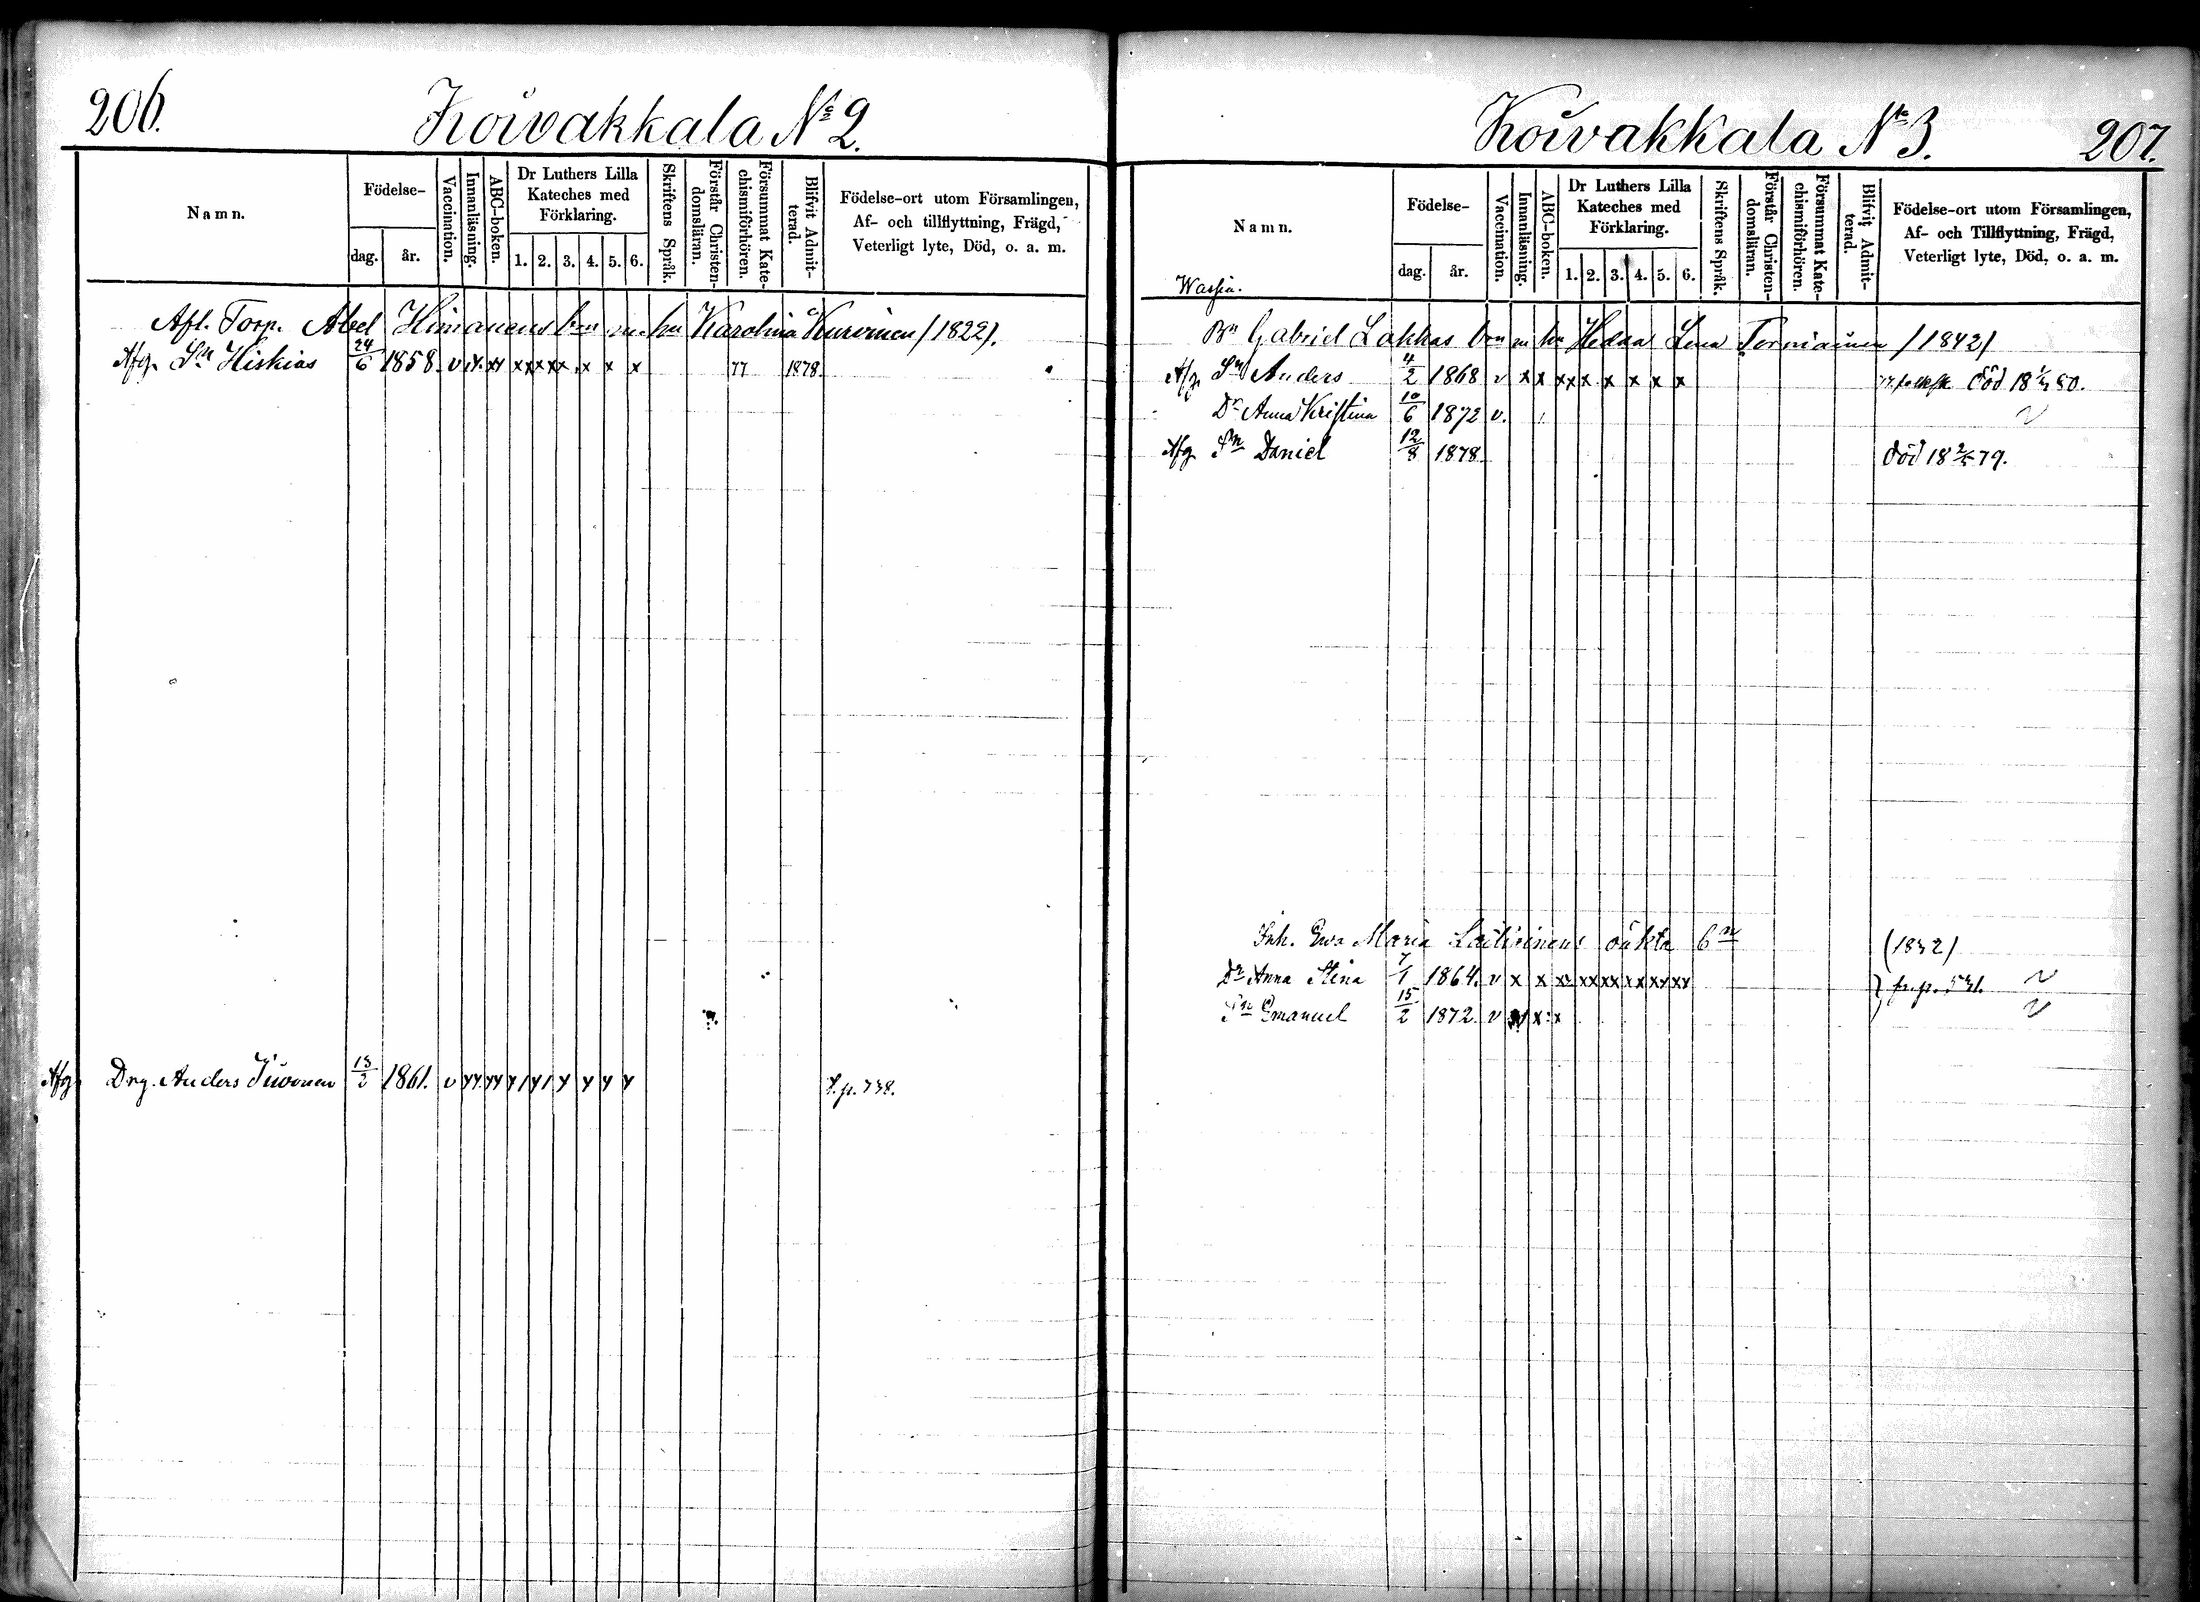 206.
Koivakkala No 2.
Namn.
Födelse-
dag.
år.
Vaccination.
Innanläsning.
ABC-boken.
Dr Luthers Lilla
Kateches med
Förklaring.
1. 2. 3. 4. 5. 6.
Skriftens Språk.
Förstår Christen-
domsläran.
Försummat Kate-
chismiförhören.
Blifvit Admit-
terad.
Födelse-ort utom Församlingen,
Af- och tillflyttning, Frägd,
Veterligt lyte, Död, o. a. m.
Afl. Torp. Abel Himanens bn m. hu Karolina Kurvinen (1822).
Afg. Sn Hiskias 24/6 1858. v x. xx xx xx x. x x x 77 1878
Afg. Drg. Anders Juvonen 13/2 1861. v xx xx x/x/ x x x x f.p. 738.
Koivakkala No 3.
207.
Namn.
Födelse-
dag.
år.
Vaccination.
Innanläsning.
ABC-boken.
Dr Luthers Lilla
Kateches med
Förklaring.
1. 2. 3. 4. 5. 6.
Skriftens Språk.
Förstår Christen-
domsläran.
Försummat Kate-
chismiförhören.
Blifvit Admit-
terad.
Födelse-ort utom Församlingen,
Af- och Tillflyttning, Frägd,
Veterligt lyte, Död, o. a. m.
Bn Gabriel Lakkas bn m hu Hedda Lena Torniainen (1842)
Afg. Sn Anders 4/2 1868 v x x xx x x x x x död 18 80.
Dr Anna Kristina 10/6 1872 v.
Afg Sn Daniel 12/8 1878. död 18 79.
Inh. Eva Maria Laitinens oäkta bn (1832)
Dr Anna Stina 7/1 1864. v x x x xx xx x x xx xx } fr. p. 531.
Sn Emanuel 15/2 1872. v x x